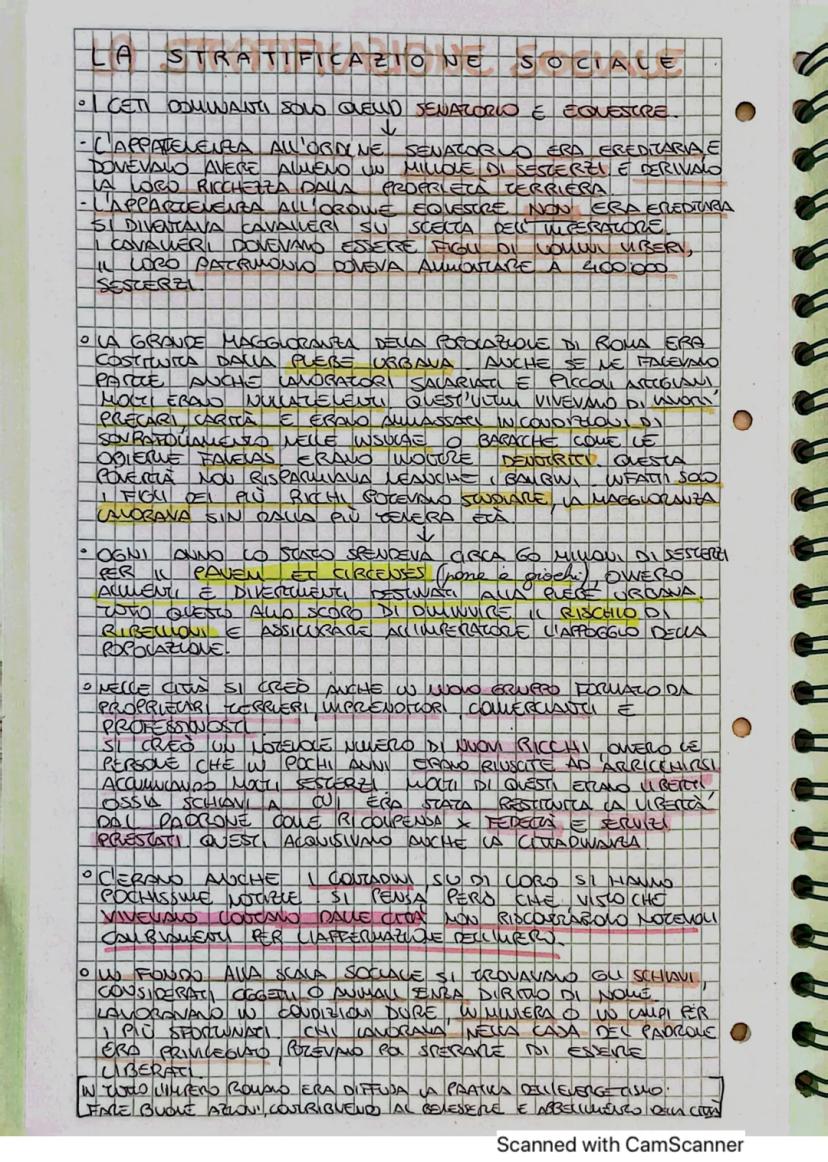 LA STRATIFICAZIONE SOCIALE
° I CETI DOMINANTI SONO QUELLO SENATORIO E EQUESTRE.
↓
- L'APPARTENENZA ALL'ORDINE SENATORIO ERA EREDITARIA E
DOVEVANO AVERE ALMENO UN MILIONE DI SESTERZI E DERIVANO
LA LORO RICCHEZZA DALLA PROPRIETÀ TERRIERA
- L'APPARTENENZA ALL'ORDINE EQUESTRE NON ERA EREDITARIA
SI DIVENTAVA CAVALIERI SU SCELTA DELL'IMPERATORE.
I CAVALIERI DOVEVANO ESSERE FIGLI DI UOMINI LIBERI,
IL LORO PATRIMONIO DOVEVA AMMONTARE A 400'000
SESTERZI.
° LA GRANDE MAGGIORANZA DELLA POPOLAZIONE DI ROMA ERA
COSTITUITA DALLA PLEBE URBANA. ANCHE SE NE FACEVANO
PARTE ANCHE LAVORATORI SALARIATI E PICCOLI ARTIGIANI
MOLTI ERANO NULLATENENTI. QUEST'ULTIMI VIVEVANO DI LAVORI
PRECARI, CARITÀ E ERANO AMMASSATI IN CONDIZIONI DI
SOVRAFFOLLAMENTO NELLE INSULAE O BARACCHE COME LE
ODIERNE FAVELAS ERANO INOLTRE DENUTRITI. QUESTA
POVERTÀ NON RISPARMIAVA NEANCHE I BAMBINI. INFATTI SOLO
I FIGLI DEI PIÙ RICCHI POTEVANO STUDIARE, LA MAGGIORANZA
LAVORAVA SIN DALLA PIÙ TENERA ETÀ.
↓
• OGNI ANNO LO STATO SPENDEVA CIRCA 60 MILIONI DI SESTERZI
PER IL PANEM ET CIRCENSES (pane e giochi), OVVERO
ALIMENTI E DIVERTIMENTI DESTINATI ALLA PLEBE URBANA.
TUTTO QUESTO ALLO SCOPO DI DIMINUIRE IL RISCHIO DI
RIBELLIONI E ASSICURARE ALL'IMPERATORE L'APPOGGIO DELLA
POPOLAZIONE.
° NELLE CITTÀ SI CREÒ ANCHE UN NUOVO GRUPPO FORMATO DA
PROPRIETARI TERRIERI, IMPRENDITORI, COMERCIANTI E
PROFESSIONISTI.
SI CREÒ UN NOTEVOLE NUMERO DI NUOVI RICCHI, OVVERO LE
PERSONE CHE IN POCHI ANNI ERANO RIUSCITE AD ARRICCHIRSI
ACCUMULANDO MOLTI SESTERZI. MOLTI DI QUESTI ERANO LIBERTI,
OSSIA SCHIAVI A CUI ERA STATA RESTITUITA LA LIBERTÀ
DAL PADRONE COME RICOMPENSA x FEDELTÀ E SERVIZI
PRESTATI. QUESTI ACQUISIVANO ANCHE LA CITTADINANZA.
° C'ERANO ANCHE I CONTADINI, SU DI LORO SI HANNO
POCHISSIME NOTIZIE. SI PENSA PERÒ CHE, VISTO CHE
VIVEVANO LONTANO DALLE CITTÀ NON RISCONTRARONO NOTEVOLI
CAMBIAMENTI PER L'AFFERMAZIONE DELL'IMPERO.
° IN FONDO ALLA SCALA SOCIALE SI TROVAVANO GLI SCHIAVI,
CONSIDERATI OGGETTI O ANIMALI SENZA DIRITTO DI NOME.
LAVORAVANO IN CONDIZIONI DURE, IN MINIERA O IN CAMPI PER
I PIÙ SFORTUNATI. CHI LAVORAVA NELLA CASA DEL PADRONE
ERA PRIVILEGIATO, POTEVANO POI SPERARE DI ESSERE
LIBERATI.
IN TUTTO L'IMPERO ROMANO ERA DIFFUSA LA PRATICA DELL'EVERGETISMO:
FARE BUONE AZIONI, CONTRIBUENDO AL BENESSERE E ABBELLIMENTO DELLA CITTÀ
Scanned with CamScanner